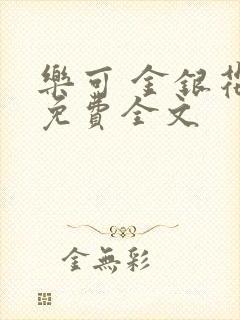 樂可 金銀花
免費全文
金無彩